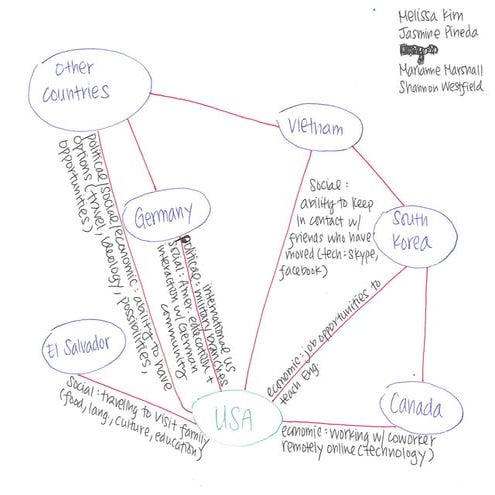 Melissa Kim
Jasmine Pineda
Marianne Marshall
Shannon Westfield
Other
countries
Vietnam
Germany
South
Korea
El Salvador
USA
Canada
political/social/economic: ability to have
options (travel, ideology, possibilities,
opportunities)
political: international US
military branches
social: Amer. education +
interaction w/ German
community
Social:
ability to keep
in contact w/
friends who have
moved (tech: skype,
facebook)
economic: job opportunities to
teach Eng
Social: traveling to visit family
(food, lang, culture, education)
economic: working w/ coworker
remotely online (technology)